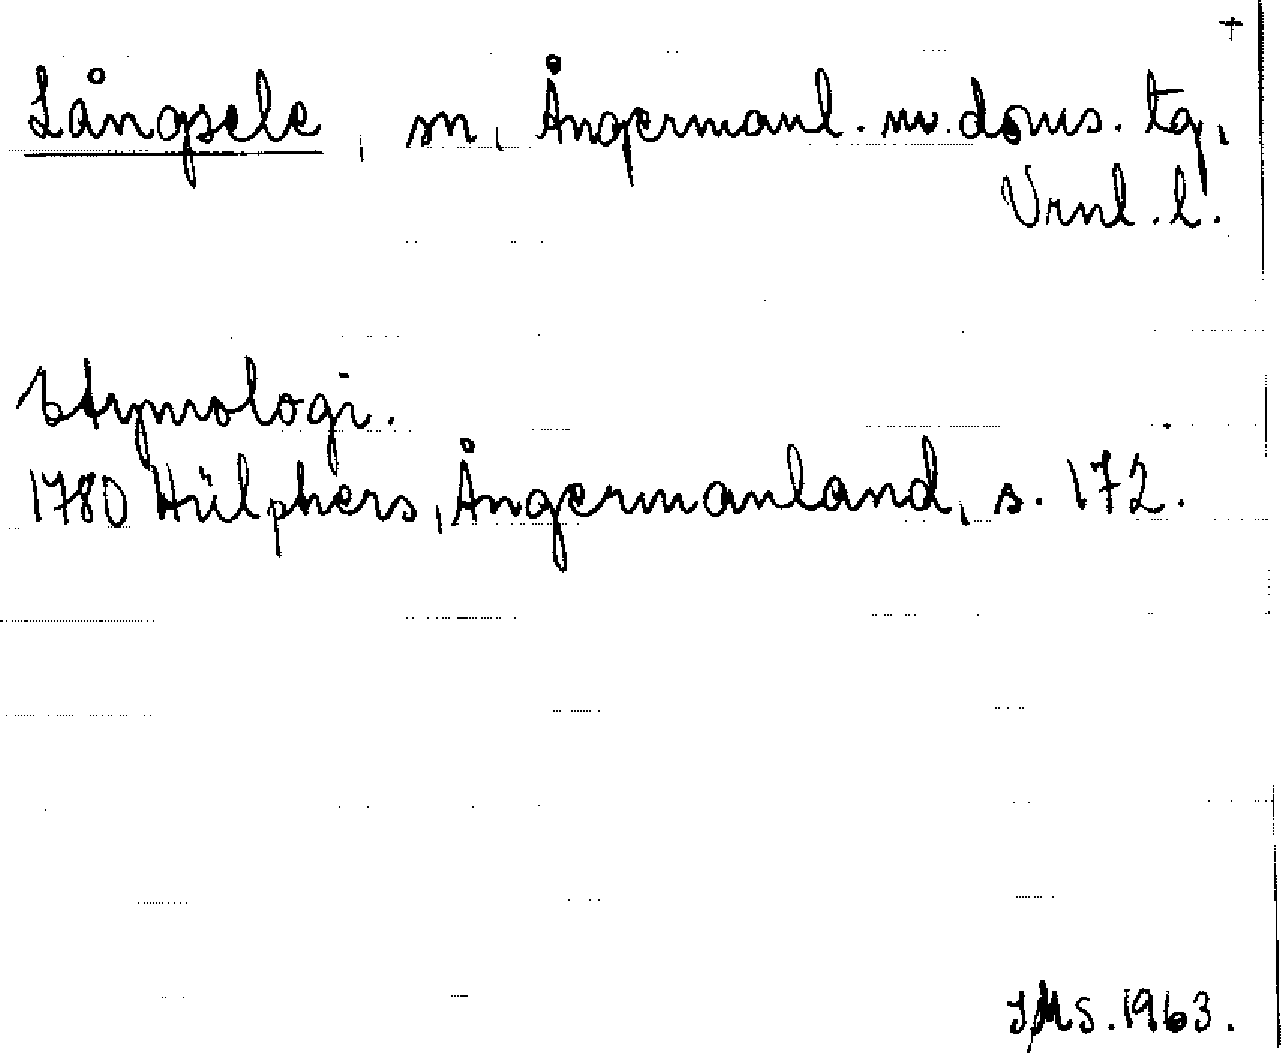 +
Långsele, sn, Ångermanl. nv. doms. tg,
Vrnl. l.
Etymologi.
1780 Hülphers, Ångermanland, s. 172.
JMS. 1963.